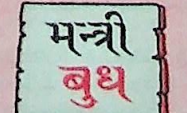 मन्त्री
बुध